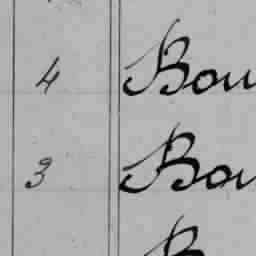 4 Bou
3 Bou
B